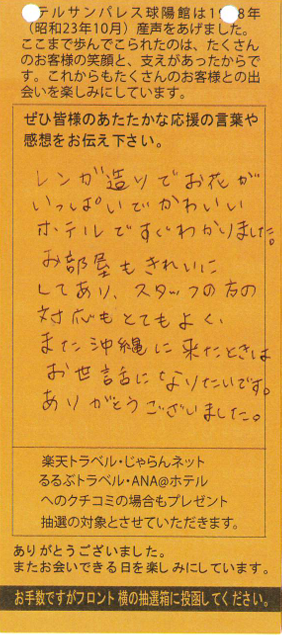 テルサンパレス球陽館は19 8年
(昭和23年10月)産声をあげました。
ここまで歩んでこられたのは、たくさん
のお客様の笑顔と、支えがあったからで
す。これからもたくさんのお客様との出
会いを楽しみにしています。
ぜひ皆様のあたたかな応援の言葉や
感想をお伝え下さい。
レンガ造りでお花が
いっぱいでかわいい
ホテルですぐわかりました。
お部屋もきれいに
してあり、スタッフの方の
対応もとてもよく、
また沖縄に来たときは
お世話になりたいです。
ありがとうございました。
楽天トラベル・じゃらんネット
るるぶトラベル・ANA@ホテル
へのクチコミの場合もプレゼント
抽選の対象とさせていただきます。
ありがとうございました。
またお会いできる日を楽しみにしています。
お手数ですがフロント横の抽選箱に投函してください。